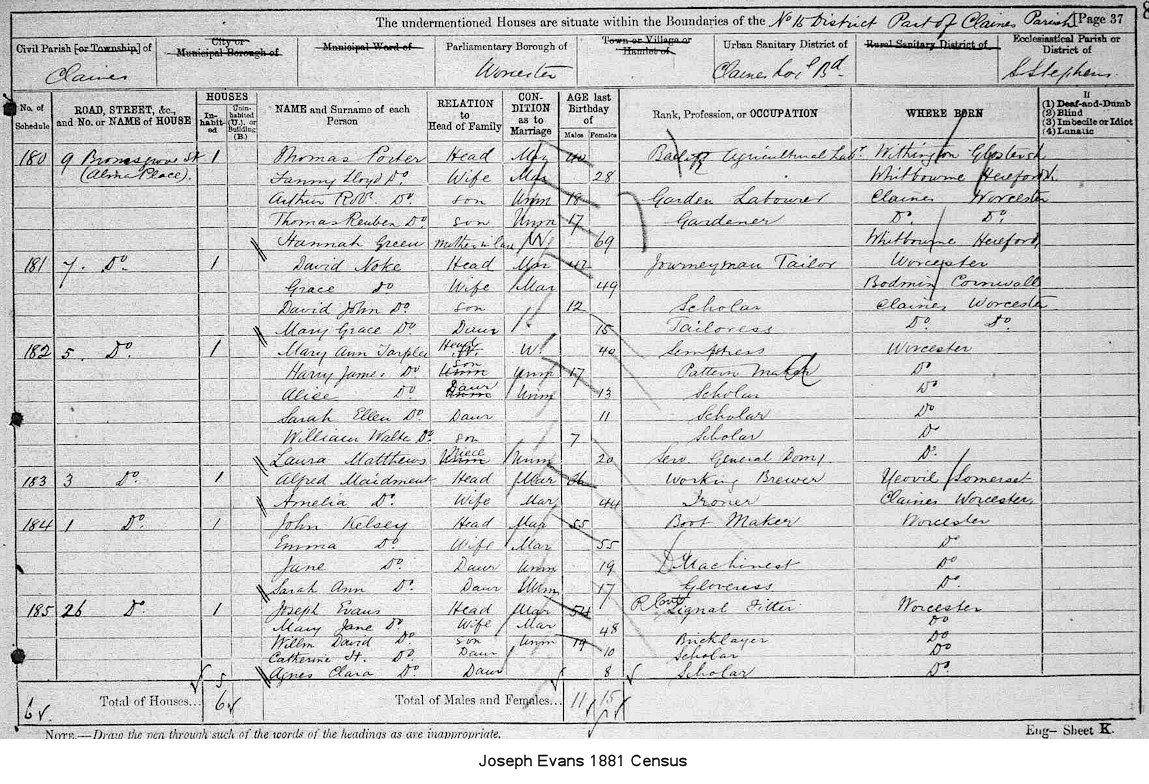 The undermentioned Houses are situate within the Boundaries of the No 15 District Part of Claines Parish [Page 37
Civil Parish [or Township] of City or Municipal Borough of Municipal Ward of Parliamentary Borough of Town or Village or Hamlet of Urban Sanitary District of Rural Sanitary District of Ecclesiastical Parish or District of
Claines Worcester Claines Local Bd S Stephens
No. of Schedule ROAD, STREET, &c., and No. or NAME of HOUSE HOUSES Inhabited Uninhabited (U.), or Building (B.) NAME and Surname of each Person RELATION to Head of Family CONDITION as to Marriage AGE last Birthday of Males Females Rank, Profession, or OCCUPATION WHERE BORN If (1) Deaf-and-Dumb (2) Blind (3) Imbecile or Idiot (4) Lunatic
180 9 Bromsgrove St 1 Thomas Porter Head Mar 40 Agricultural Labr Withington Glostersh
(Alma Place). Fanny Lloyd Do Wife Mar 28 Whitbourne Hereford
Arthur Robt Do son Unm 18 Garden Labourer Claines Worcester
Thomas Reuben Do son Unm 17 Gardener Do Do
Hannah Green Mother in Law W 69 Whitbourne Hereford
181 7. Do 1 David Noke Head Mar 47 Journeyman Tailor Worcester
Grace Do Wife Mar 49 Bodmin Cornwall
David John Do son 12 Scholar Claines Worcester
Mary Grace Do Daur 15 Tailoress Do Do
182 5. Do 1 Mary Ann Tarplee Head W. 40 Semptress Worcester
Harry James Do son Unm 17 Pattern Maker Do
Alice Do Daur Unm 13 Scholar Do
Sarah Ellen Do Daur 11 Scholar Do
William Walter Do son 7 Scholar Do
Laura Matthews Niece Unm 20 Serv General Dom Do
183 3 Do 1 Alfred Maidment Head Mar Working Brewer Yeovil Somerset
Amelia Do Wife Mar 44 Ironer Claines Worcester
184 1 Do 1 John Kelsey Head Mar 55 Boot Maker Worcester
Emma Do Wife Mar 55 Do
Jane Do Daur Unm 19 Machinest Do
Sarah Ann Do Daur Unm 17 Gloveress Do
185 26 Do 1 Joseph Evans Head Mar 54 Signal Fitter Worcester
Mary Jane Do Wife Mar 48 Do
Willm David Do son Unm 19 Bricklayer Do
Catherine H. Do Daur 10 Scholar Do
Agnes Clara Do Daur 8 Scholar Do
6 Total of Houses... 5 6 Total of Males and Females... 11 15
NOTE.—Draw the pen through such of the words of the headings as are inappropriate. Eng— Sheet K.
Joseph Evans 1881 Census